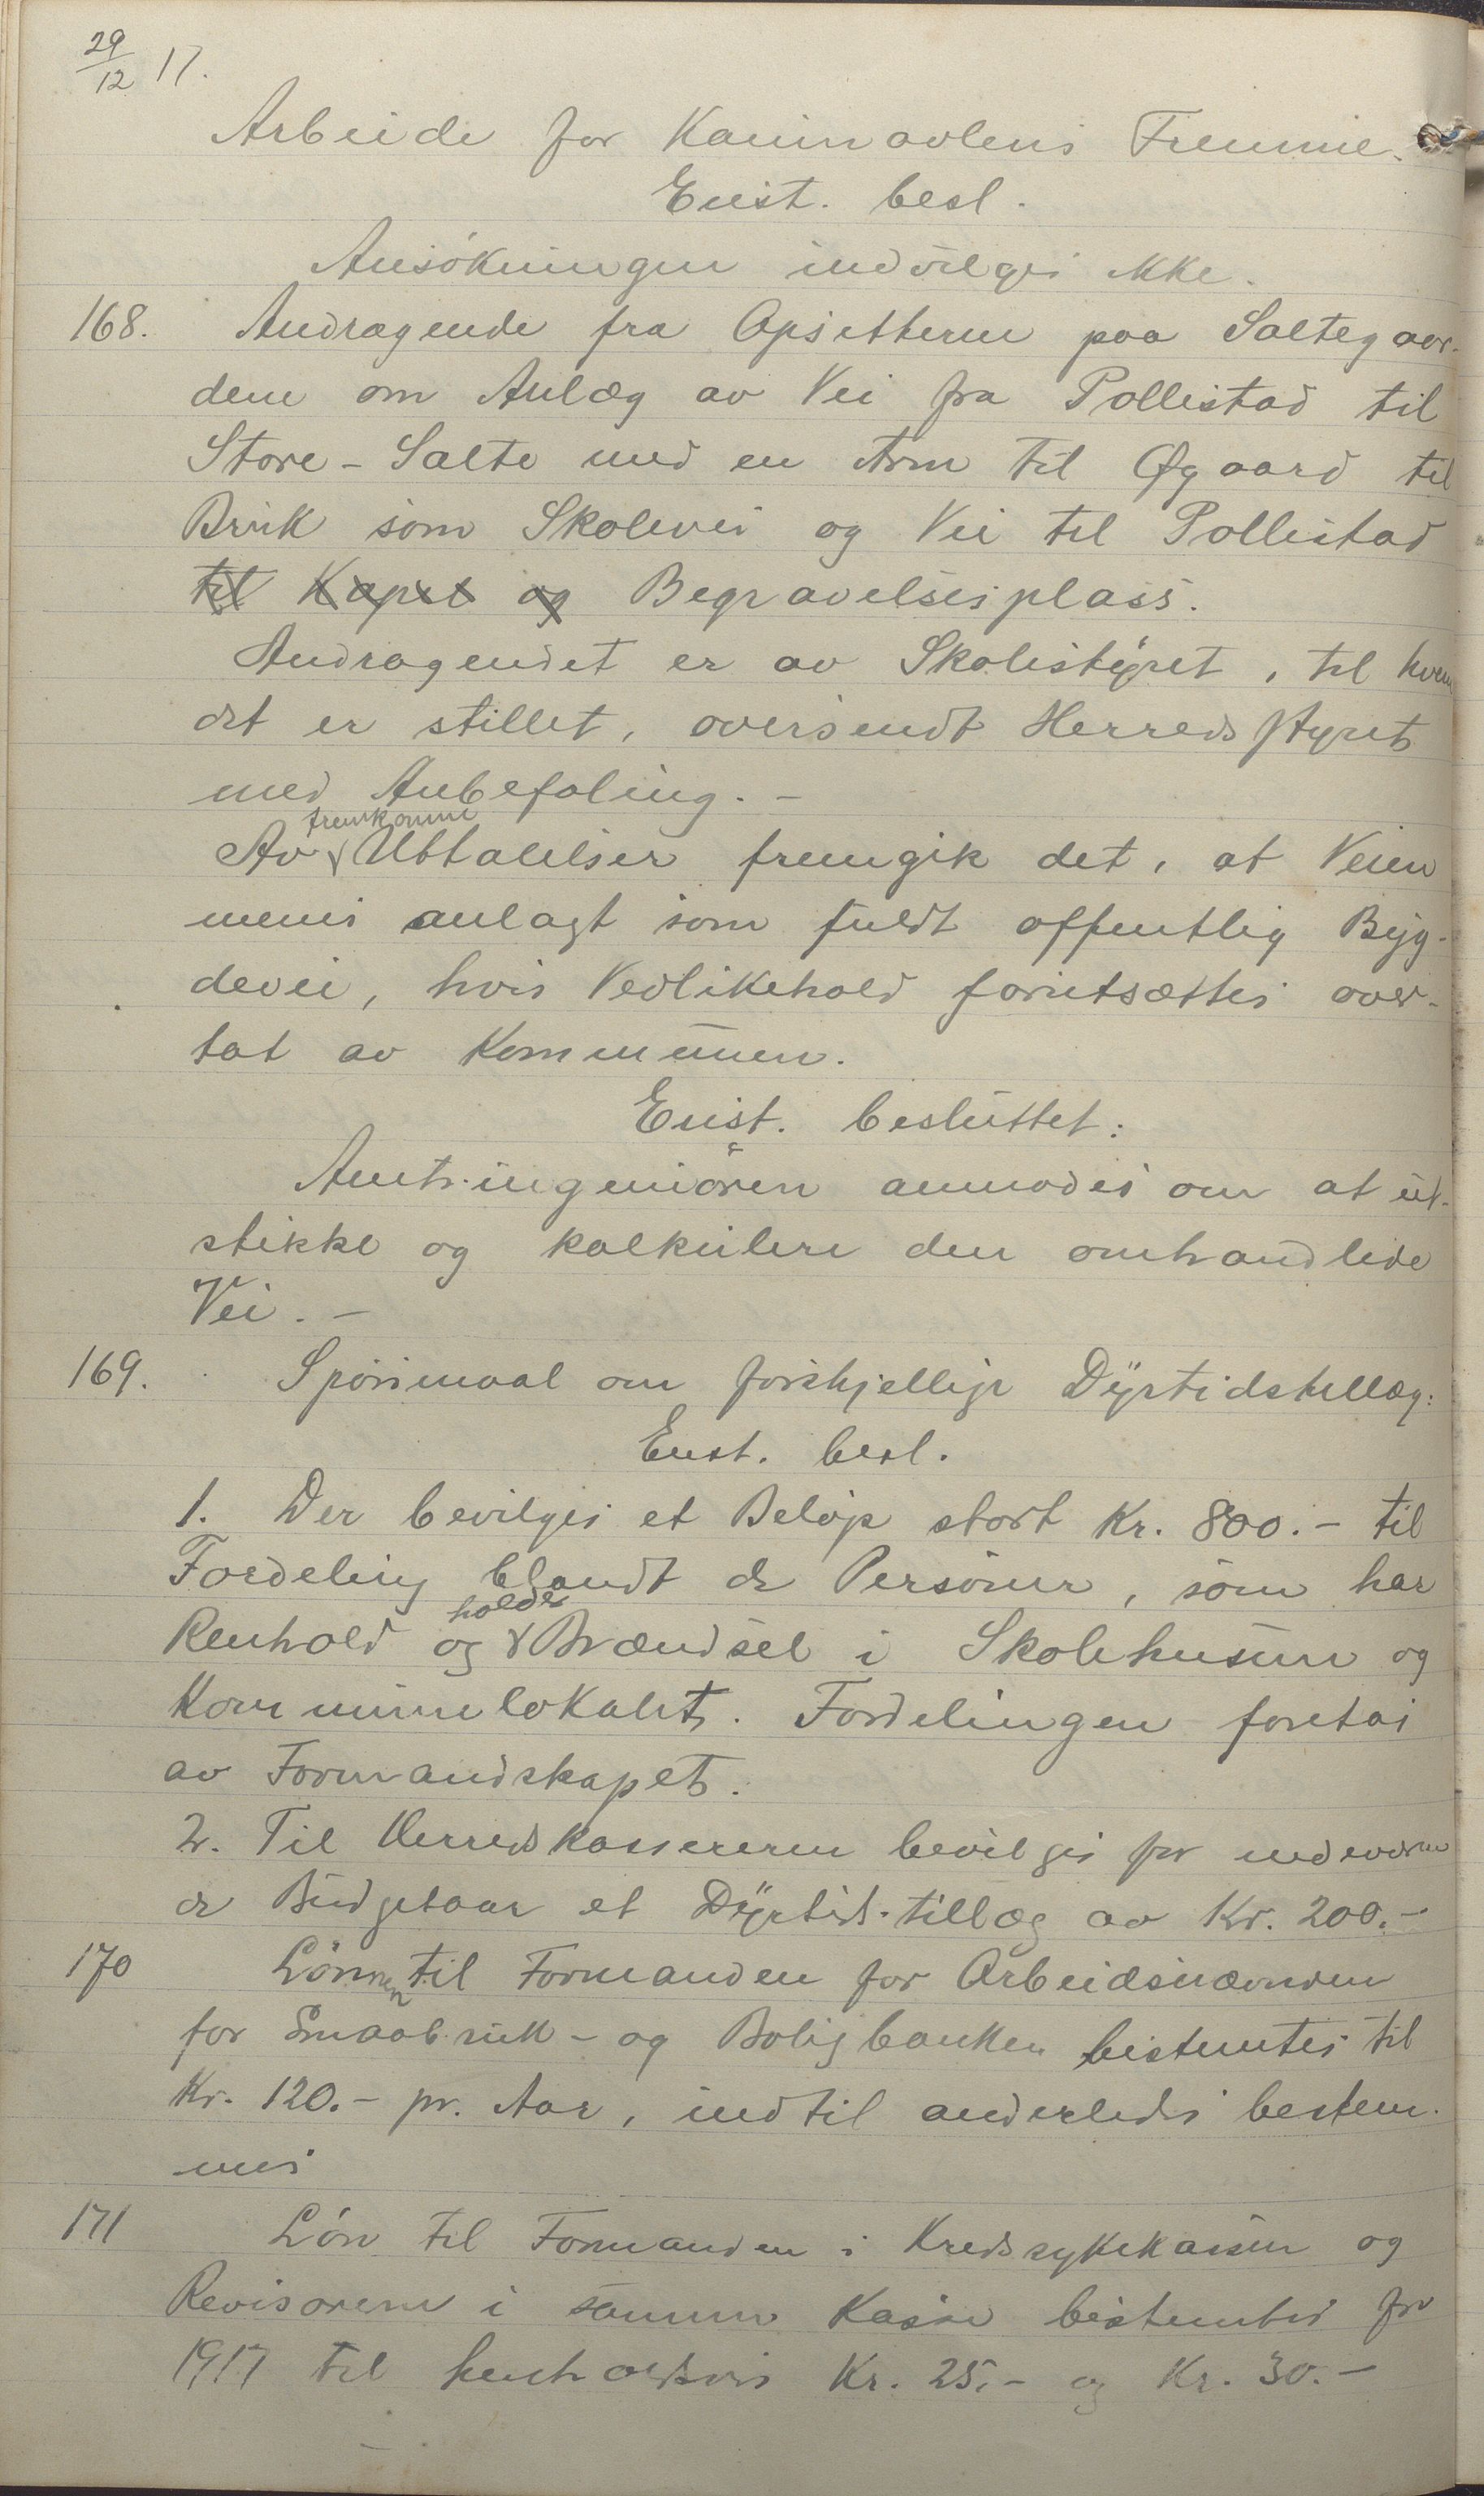 29/12 17.
Arbeide for Kaninavlens Fremme.
Enst. besl.
Ansökningen indvilges ikke.
168. Andragende fra Opsitterne paa Saltegaar-
dene om Anlæg av Vei fra Pollestad til
Store-Salte med en Arm til Øgaard til
Bruk som Skolevei og Vei til Pollestad
til Kapel og Begravelsesplass.
Andragendet er av Skolestyret, til hvem
det er stillet, oversendt Herredsstyret
med Anbefaling. -
fremkomne
Av Uttalelser fremgik det, at Veien
menes anlagt som fuldt offentlig Byg-
devei, hvis Vedlikehold forutsættes over-
tat av Kommunen.
Enst. besluttet:
Amtsingeniören anmodes om at ut-
stikke og kalkulere den omhandlede
Vei. -
169. Spörsmaal om forskjellige Dyrtidstillæg:
Enst. besl.
1. Der bevilges et Belöp stort Kr. 800.- til
Fordeling blandt de Personer, som har
holder
Renhold og Brændsel i Skolehusene og
Kommunelokalet. Fordelingen foretas
av Formandskapet.
2. Til Herredskassereren bevilges for indeværen
de Budgetaar et Dyrtidstillæg av Kr. 200.-
170 Lönnen til Formanden for Arbeidsnævnden
for Smaabruk- og Boligbanken bestemtes til
Kr. 120.- pr. Aar, indtil anderledes bestem-
mes
171 Lön til Formanden i Kredssykekassen og
Revisorerne i samme Kasse bestemtes for
1917 til henholdsvis Kr. 25.- og Kr. 30.-